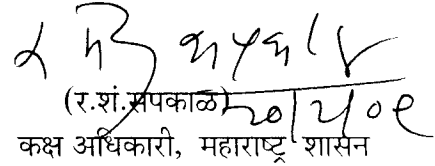 (र.शं.सपकाळ)
२०/५/०९
कक्ष अधिकारी, महाराष्ट्र शासन